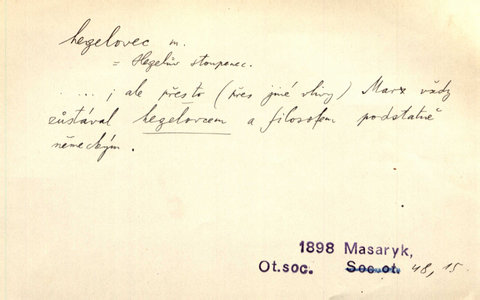 hegelovec m.
= Hegelův stoupenec.
.... ; ale přesto (přes jiné vlivy) Marx vždy
zůstával hegelovcem a filosofem podstatně
německým.
1898 Masaryk,
Ot.soc. Soc.ot. 48, 15.